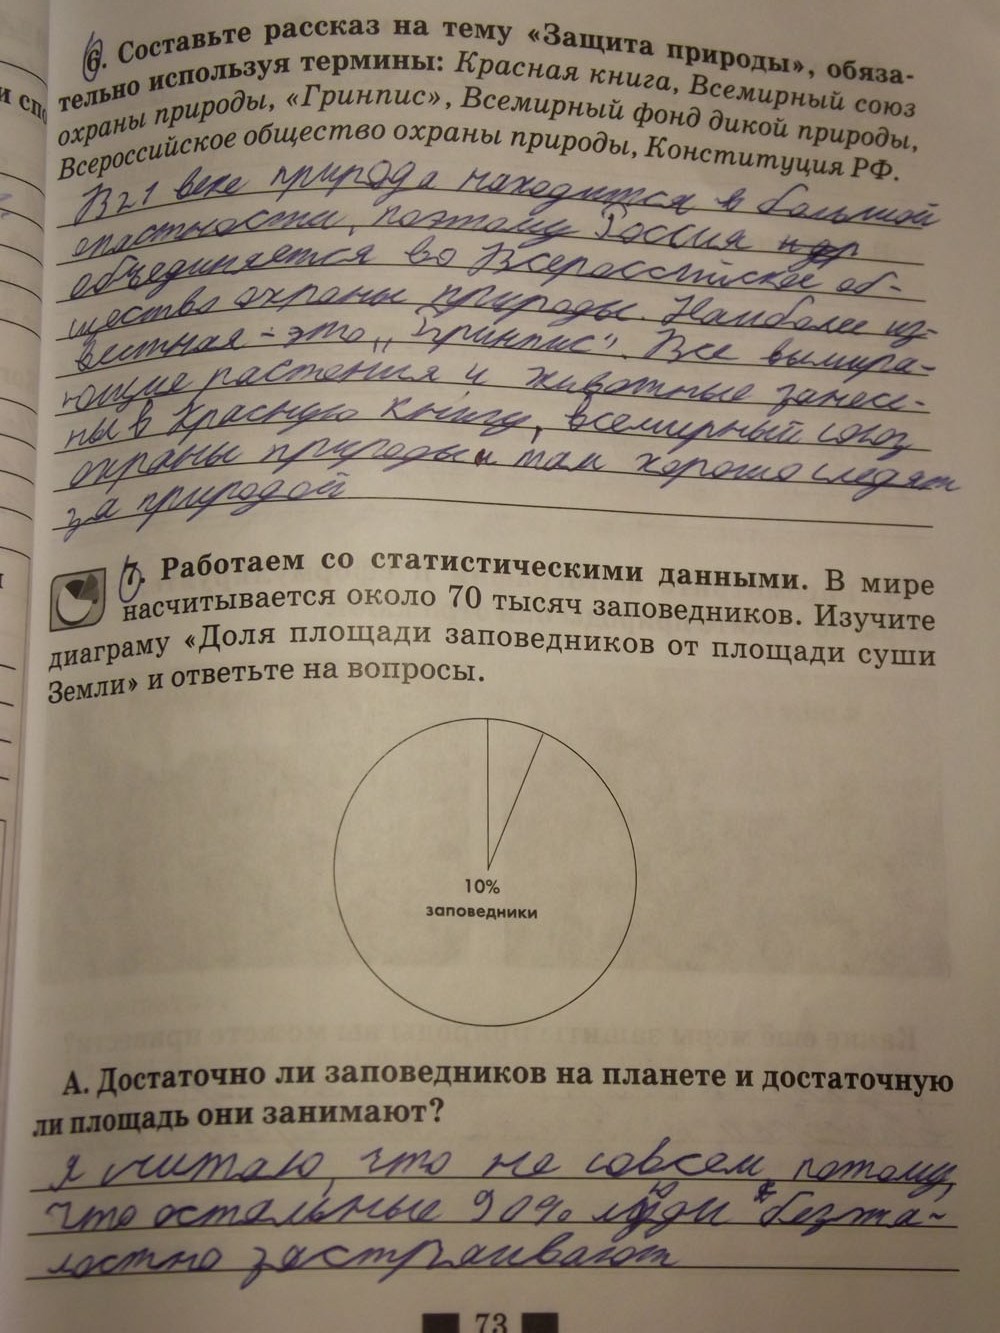 6. Составьте рассказ на тему «Защита природы», обяза-
тельно используя термины: Красная книга, Всемирный союз
охраны природы, «Гринпис», Всемирный фонд дикой природы,
Всероссийское общество охраны природы, Конституция РФ.
В 21 веке природа находится в большой
опастности, поэтому Россия
объединяется во Всероссийское об-
щество охраны природы. Наиболее из-
вестная - это „Гринпис". Все вымира-
ющие растения и животные занесе-
ны в Красную книгу, всемирный союз
охраны природы и там хорошо следят
за природой
7. Работаем со статистическими данными. В мире
насчитывается около 70 тысяч заповедников. Изучите
диаграму «Доля площади заповедников от площади суши
Земли» и ответьте на вопросы.
10%
заповедники
А. Достаточно ли заповедников на планете и достаточную
ли площадь они занимают?
Я считаю, что не совсем потому,
что остальные 90% люди безжа-
лостно застраивают
73